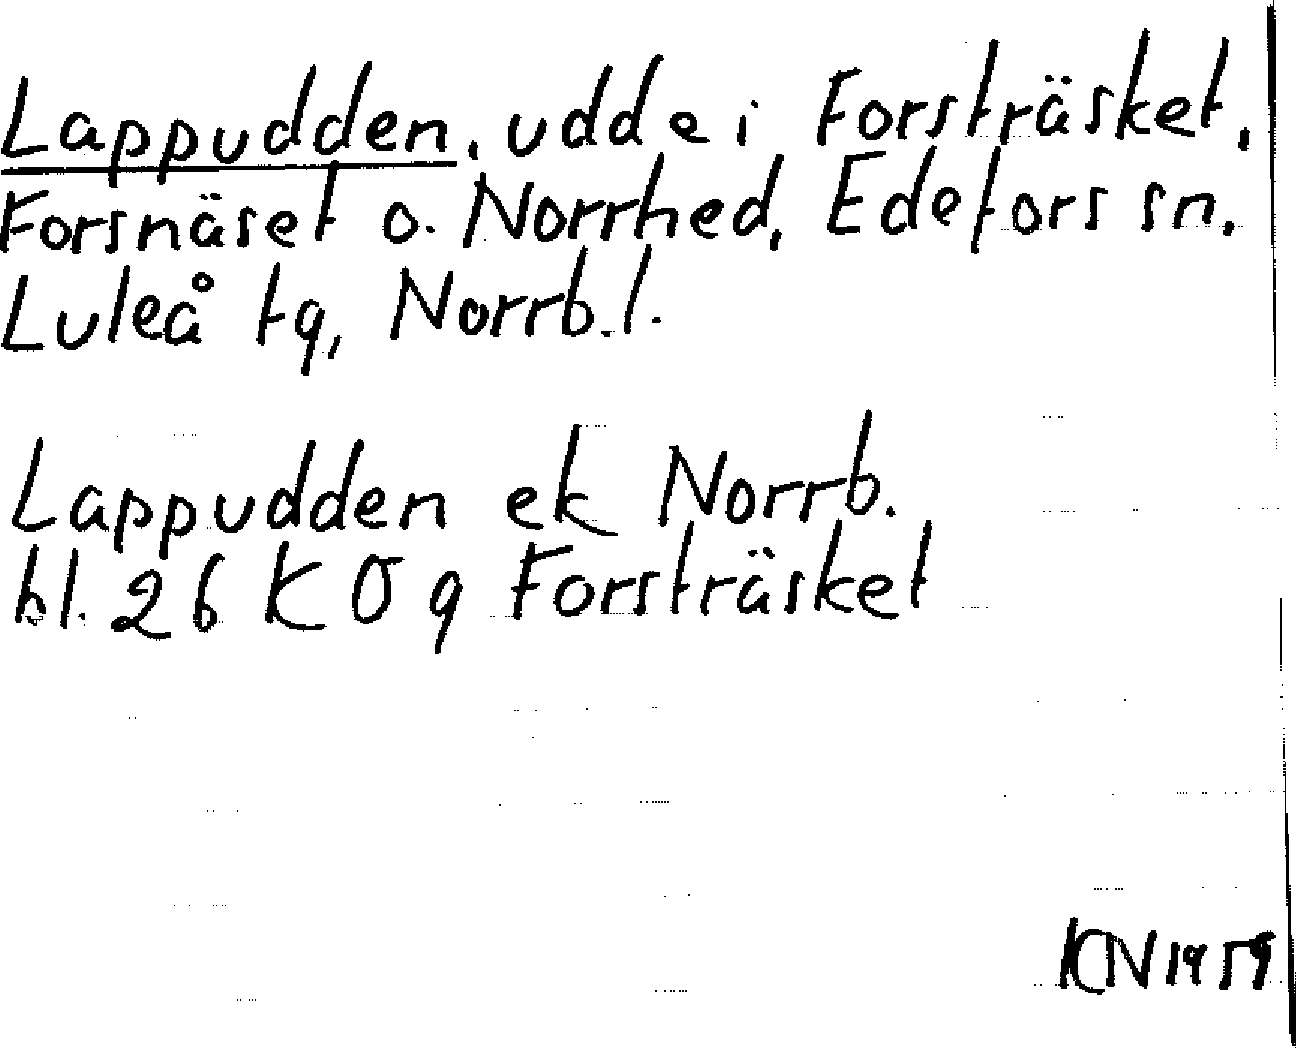 Lappudden, udde i Forsträsket,
Forsnäset o. Norrhed, Edefors sn,
Luleå tg, Norrb. l.
Lappudden ek Norrb.
bl. 26 K O q Forsträsket
KCN 1959